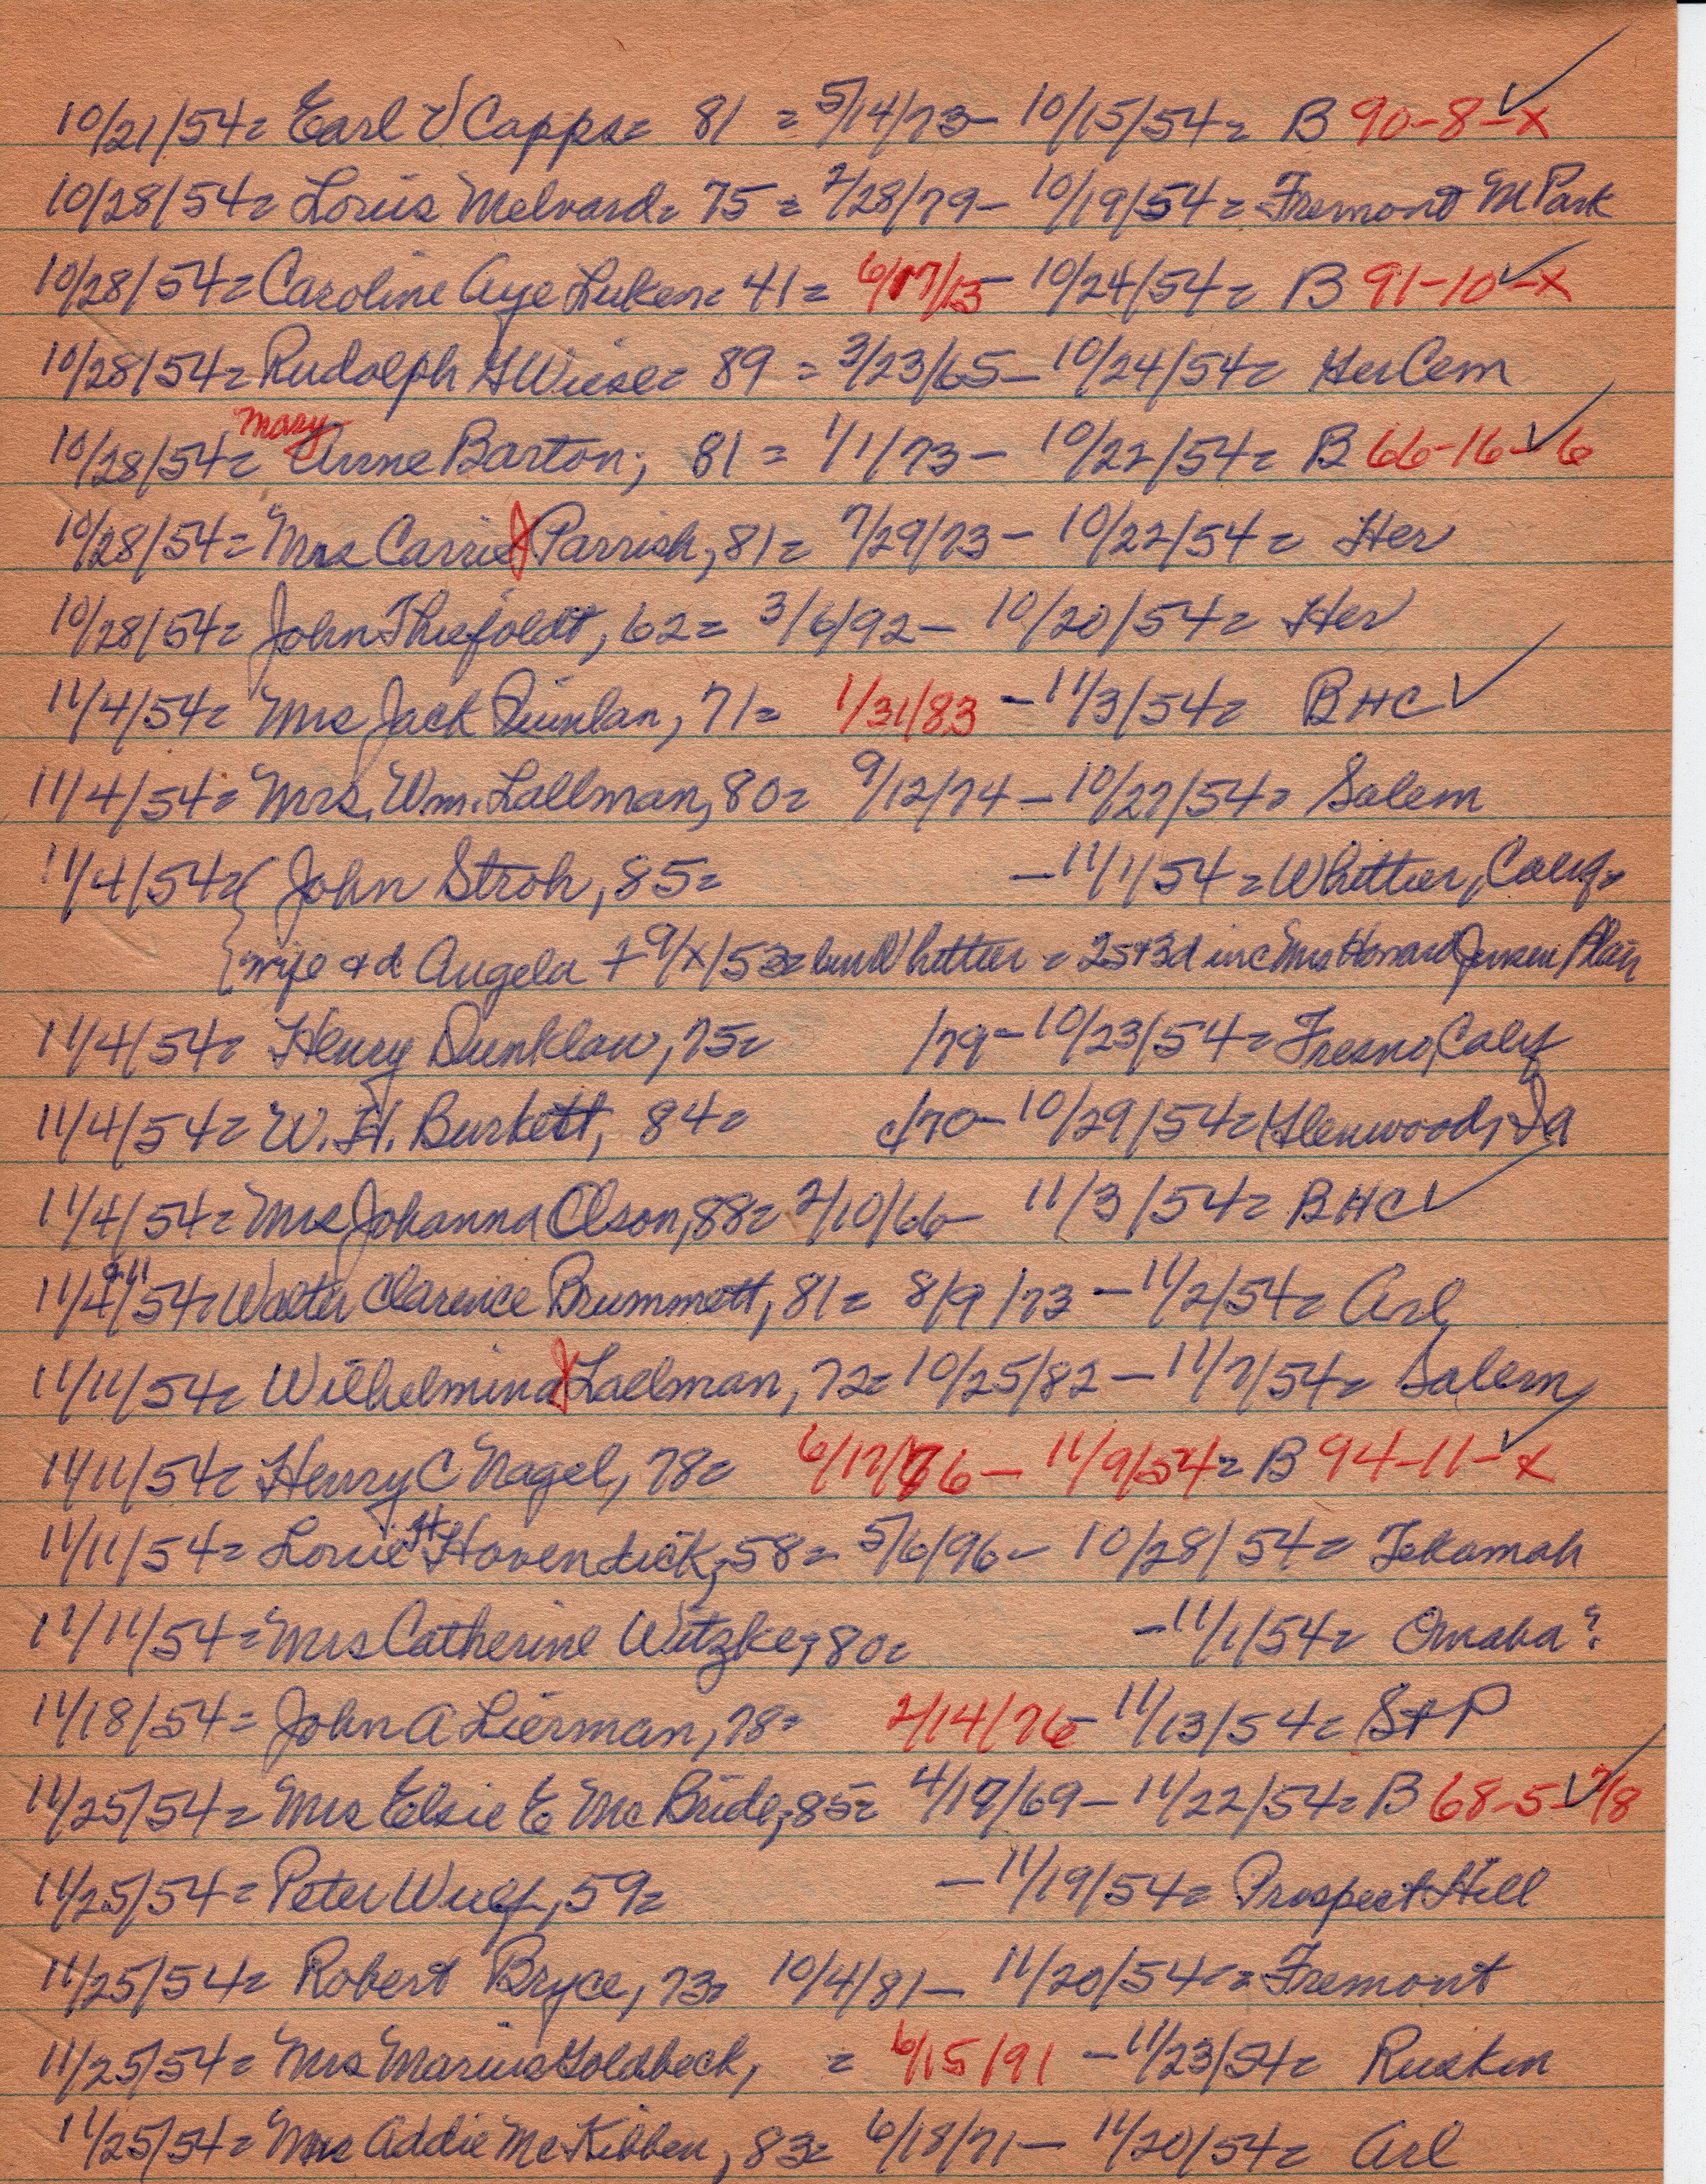 10/21/54= Earl V Capps= 81 = 5/14/73- 10/15/54= B 90-8-x ✓
10/28/54= Louis Melvard= 75 = 2/28/79- 10/19/54= Fremont M Park
10/28/54= Caroline Aye Luken= 41= 6/17/13- 10/24/54= B 91-10-x ✓
10/28/54= Rudolph G Wiese= 89 = 3/23/65- 10/24/54= Her Cem
10/28/54= Mary Anne Barton; 81 = 1/1/73- 10/22/54= B 66-16-6 ✓
10/28/54= Mrs Carrie J Parrish, 81= 7/29/73- 10/22/54= Her
10/28/54= John Thiefoldt, 62= 3/6/92- 10/20/54= Her
11/4/54= Mrs Jack Quinlan, 71= 1/31/83 -11/3/54= BHC ✓
11/4/54= Mrs. Wm. Lallman, 80= 9/12/74-10/27/54= Salem
11/4/54= { John Stroh, 85= -11/1/54= Whittier, Calif=
{ wife & d Angela + 9/x/53= bur Whittier = 2s+3d inc Mrs Howard Jensen Blair
11/4/54= Henry Dunklau, 75= /79-10/23/54= Fresno, Calif
11/4/54= W. H. Burkett, 84= c/70-10/29/54= Glenwood, Ia
11/4/54= Mrs Johanna Olson, 88= 2/10/66- 11/3/54= BHC ✓
11/4 & 11/54= Walter Clarence Brummett, 81= 8/9/73-11/2/54= Arl
11/11/54= Wilhelmina J Lallman, 72= 10/25/82-11/7/54= Salem
11/11/54= Henry C Nagel, 78= 6/17/76- 11/9/54= B 94-11-x ✓
11/11/54= Louie H Hovendick, 58= 5/6/96- 10/28/54= Tekamah
11/11/54= Mrs Catherine Witzke, 80= -11/1/54= Omaha?
11/18/54= John A Lierman, 78= 2/14/76-11/13/54= St P
11/25/54= Mrs Elsie E McBride, 85= 4/17/69-11/22/54= B 68-5-7/8 ✓
11/25/54= Peter Wulf, 59= -11/19/54= Prospect Hill
11/25/54= Robert Bryce, 73= 10/4/81- 11/20/54= Fremont
11/25/54= Mrs Marius Goldbeck, = 6/15/91 -11/23/54= Ruskin
11/25/54= Mrs Addie McKibben, 83= 6/18/71- 11/20/54= Arl